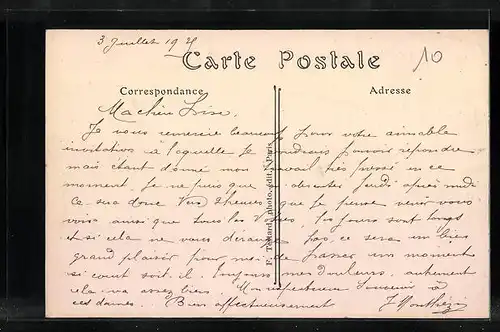 3 Juillet 19
10
Carte Postale
Correspondance
Adresse
Ma chère Lise,
Je vous remercie beaucoup pour votre aimable
invitation à laquelle je voudrais pouvoir répondre
mais étant donné mon travail très pressé en ce
moment, je ne puis que m'absenter Jeudi après midi
Ce sera donc vers 2 heures que je pense venir vous
voir ainsi que tous les Vôtres, les jours sont longs
et si cela ne vous dérange pas, ce sera un bien
grand plaisir pour moi de passer un moment
si court soit-il. Toujours mes douleurs, autrement
cela va assez bien. Mon respectueux souvenir à
ces dames. Bien affectueusement
F. photo. édit., Paris